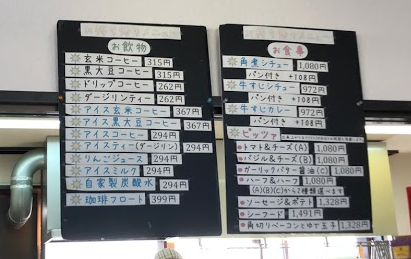 お飲物
玄米コーヒー 315円
黒大豆コーヒー 315円
ドリップコーヒー 262円
ダージリンティー 262円
アイス玄米コーヒー 367円
アイス黒大豆コーヒー 367円
アイスコーヒー 294円
アイスティー(ダージリン) 294円
りんごジュース 294円
アイスミルク 294円
自家製炭酸水 294円
珈琲フロート 399円
お食事
角煮シチュー 1,080円
パン付き +108円
牛すじシチュー 972円
パン付き +108円
牛すじカレー 972円
パン付き +108円
ピッツァ
トマト&チーズ(A) 1,080円
バジル&チーズ(B) 1,080円
ガーリックバター醤油(C) 1,080円
ハーフ&ハーフ 1,080円
(A)(B)(C)から2種類選べます
ソーセージ&ポテト 1,328円
シーフード 1,491円
角切りベーコンとゆで玉子 1,328円